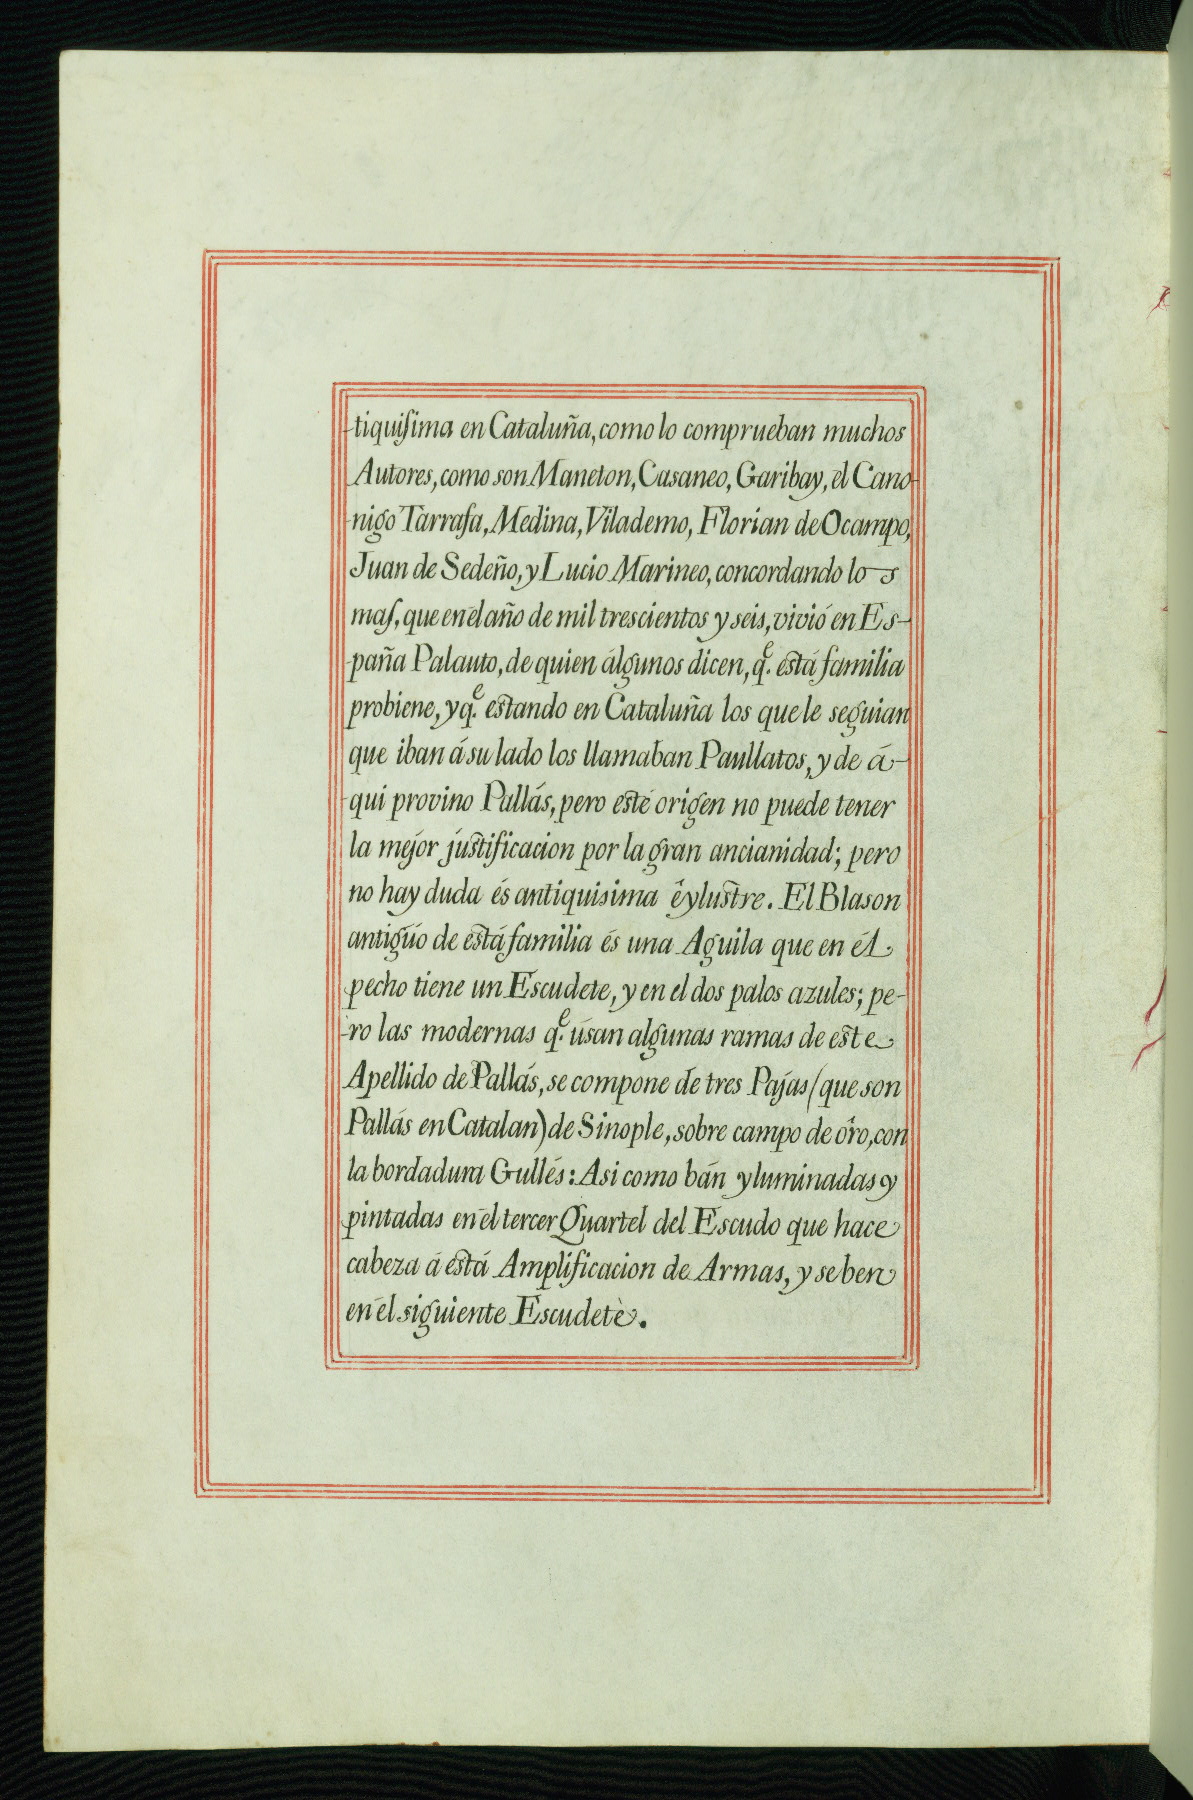 -tiquiſima en Cataluña, como lo comprueban muchos
Autores, como son Maneton, Casaneo, Garibay, el Cano-
-nigo Tarrafa, Medina, Vilademo, Florian de Ocampo,
Juan de Sedeño, y Lucio Marineo, concordando los
maſ, que en el año de mil trescientos y seis, vivió en Es-
-paña Palauto, de quien álgunos dicen, q.e está familia
probiene, y q.e estando en Cataluña los que le seguian
que iban á su lado los llamaban Paullatos, y de á-
-qui provino Pallás, pero esté origen no puede tener
la mejor justificacion por la gran ancianidad; pero
no hay duda és antiquisima é ylustre. El Blason
antigüo de está familia és una Aguila que en él
pecho tiene un Escudete, y en el dos palos azules; pe-
-ro las modernas q.e úsan algunas ramas de este
Apellido de Pallás, se compone de tres Pajas (que son
Pallás en Catalan) de Sinople, sobre campo de óro, con
la bordadura Gullés: Asi como bán yluminadas y
pintadas en él tercer Quartel del Escudo que hace
cabeza á está Amplificacion de Armas, y se ben
en él siguiente Escudete.